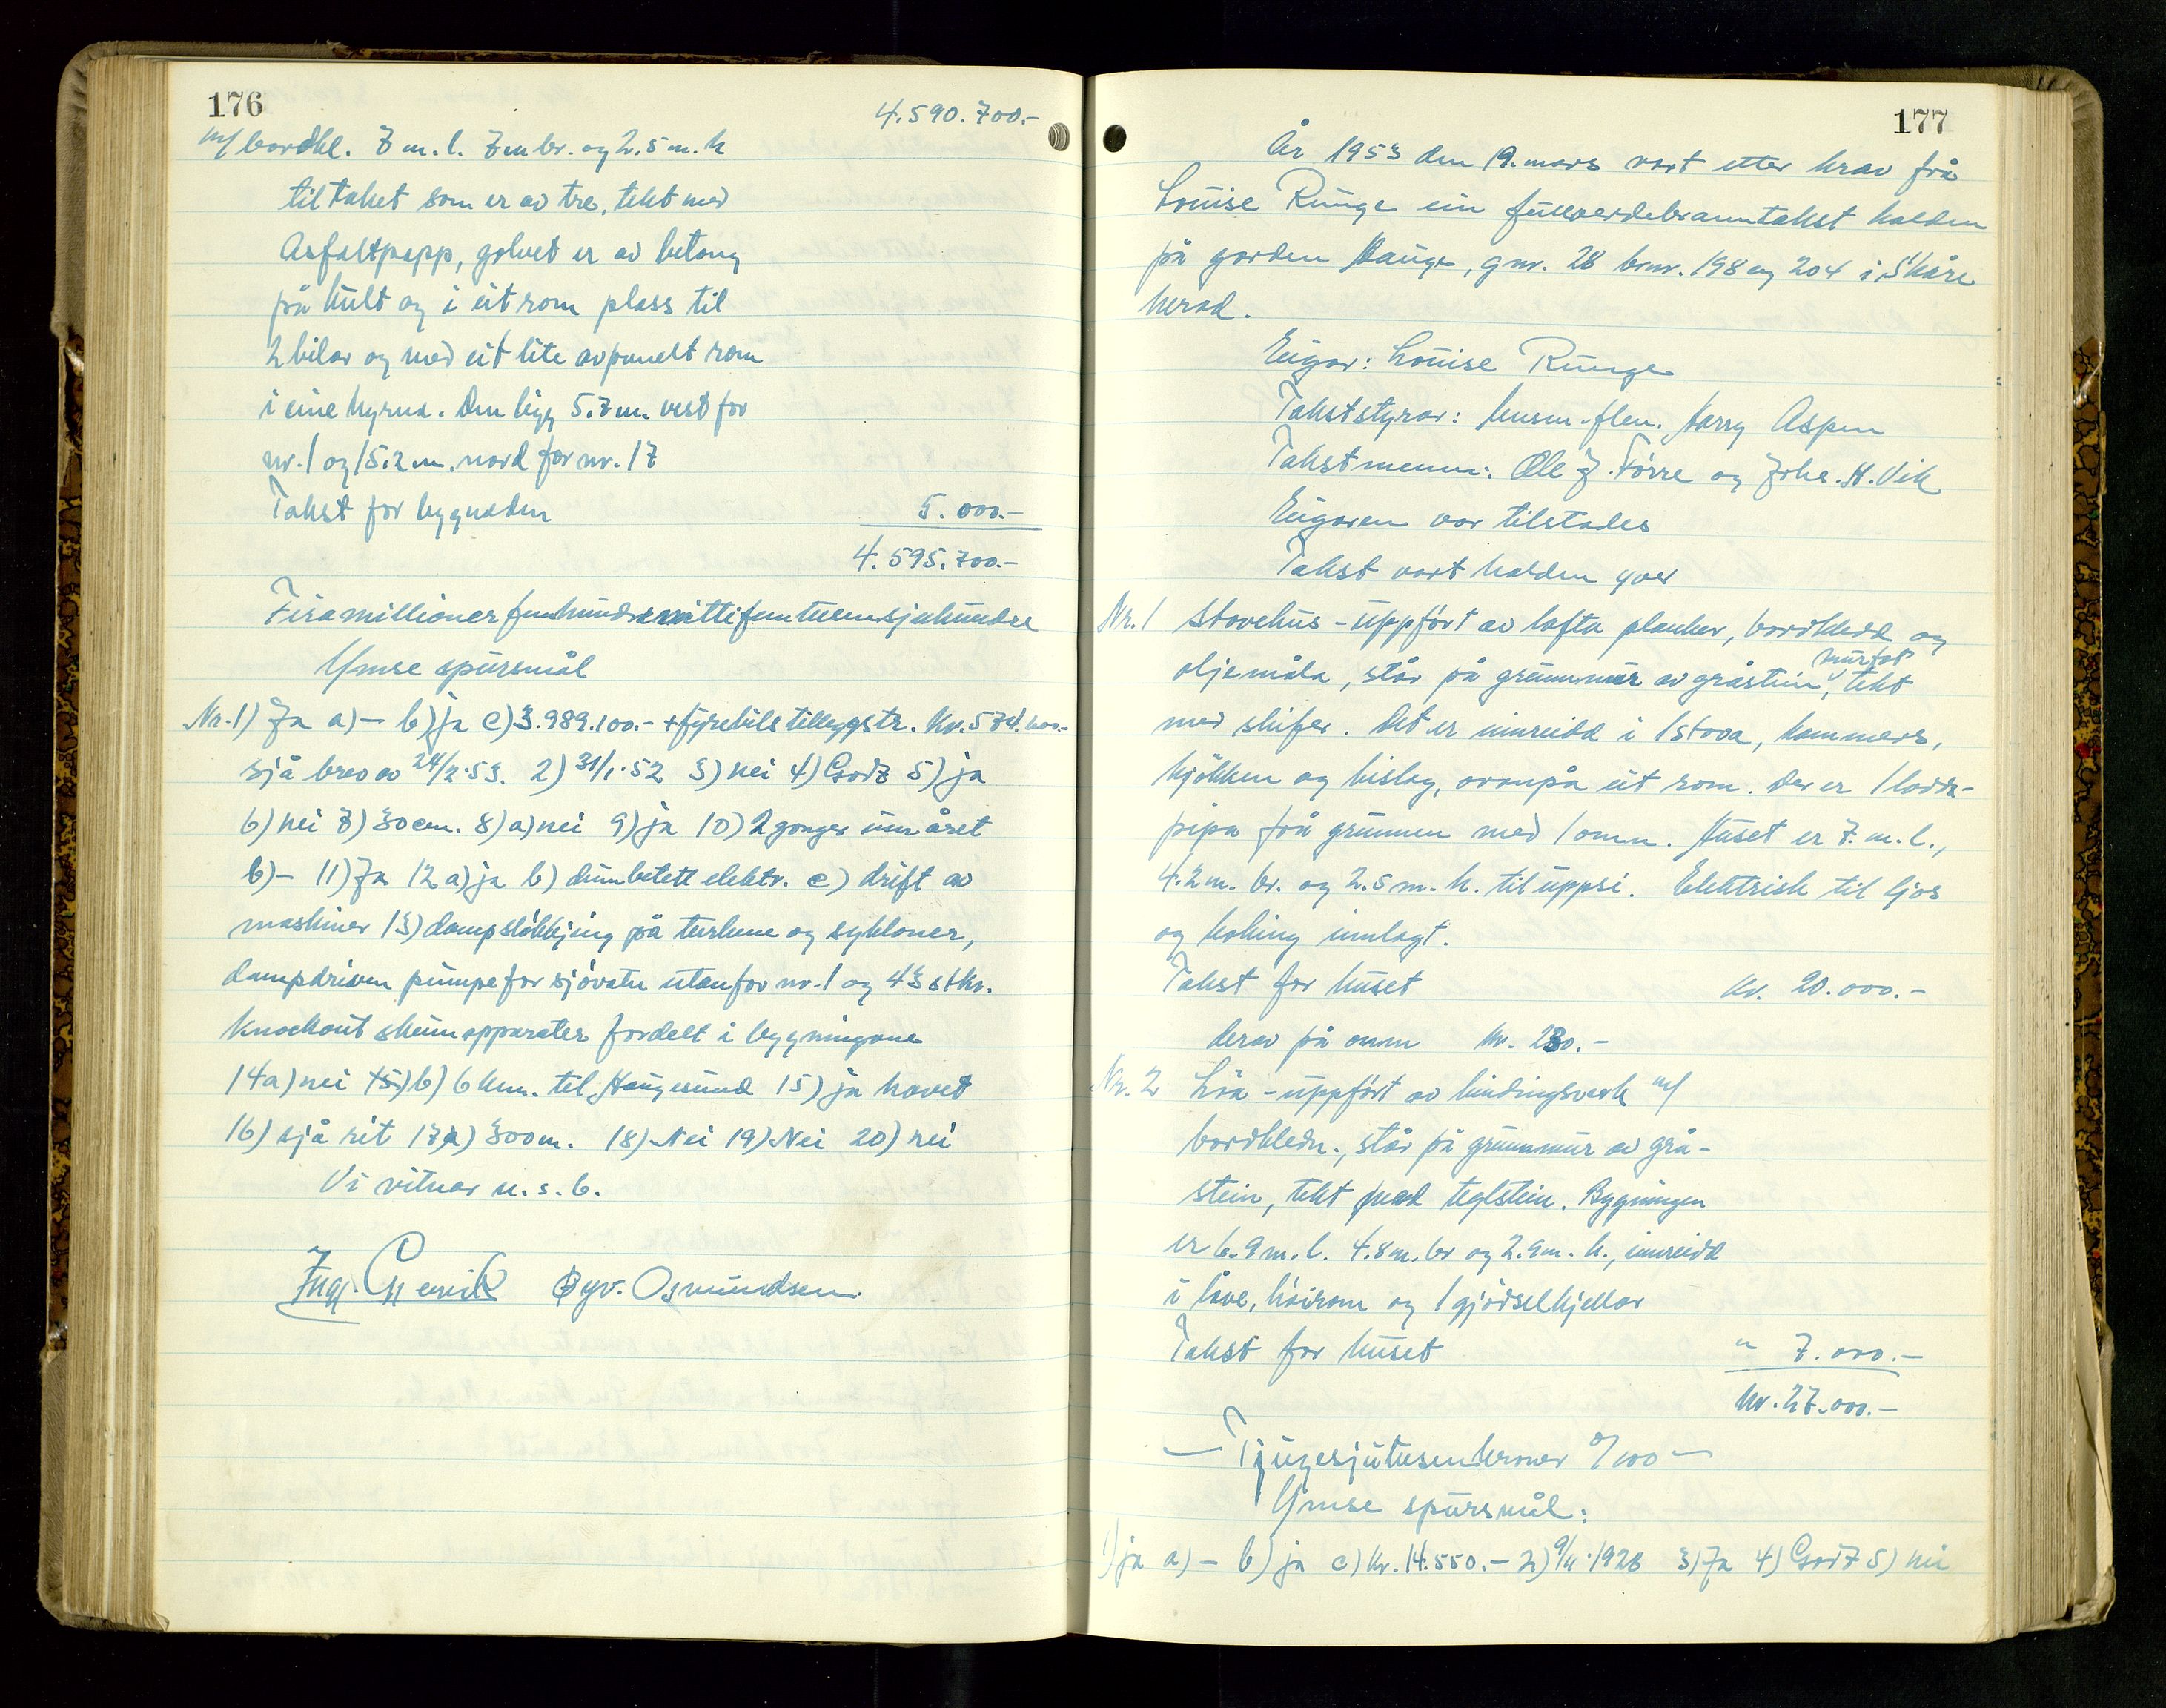 176
4.590.700.-
m/bordkl. 7 m. l. 7 m br. og 2.5 m. h
til taket som er av tre, tekt med
Asfaltpapp, golvet er av betong
på kult og i eit rom plass til
2 bilar og med eit lite avpanelt rom
i eine hyrna. Den ligg 5.7 m. vest for
nr. 1 og 15.2 m. nord for nr. 17
Takst for bygnaden 5.000.-
4.595.700.-
Firamillionerfemhundrenittifemtusensjuhundre
Ymse spursmål
Nr. 1) Ja a) - b) ja c) 3.989.100.- + fyrebils tilleggstr. kr. 574.
sjå brev av 24/2.53. 2) 31/1.52 3) nei 4) God 5) ja
6) nei 7) 30 cm. 8) a) nei 9) ja 10) 2 gonger um året
b) - 11) Ja 12 a) ja b) elektr. c) drift av
maskiner 13) dampslökkjing på turbune og sykloner,
dampdriven pumpe for sjövatn utanfor nr. 1 og 43 stkr.
Knockout skumapparater fordelt i bygningane
14a) nei 15) b) 6 km. til Haugesund 15) ja havet
16) sjå rit 17a) 300 m. 18) Nei 19) Nei 20) nei
Vi vitnar u. s. b.
Øyv. Osmundsen
177
År 1953 den 19. mars vart etter krav frå
Louise Runge ein fullverdebranntakst halden
på garden Hauge, gnr. 28 brnr. 198 og 204 i Skåre
herad.
Eigar: Louise Runge
Takststyrar: lensm.flm. Harry Aspen
Takstmenn: Ole J. Förre og Johs. H. Vik
Eigaren var tilstades
Takst vart halden yver
Nr. 1 Stovehus - uppfört av lafta planker, bordkledd og
oljemåla, står på grunnmur av gråstein, murfot tekt
med skifer. Det er innreidd i 1 stova, kammers,
kjökken og bislag, ovanpå eit rom. Der er 1 lodd-
pipa frå grunnen med 1 omn. Huset er 7. m. l.,
4.2 m. br. og 2.5 m. h. til uppsi. Elektrisk til ljos
og koking innlagt.
Takst for huset kr. 20.000.-
derav på omn kr. 230.-
Nr. 2 Löa - uppfört av bindingsverk m/
bordkledn., står på grunnmur av grå-
stein, tekt med teglstein. Bygningen
er 6.9 m. l. 4.8 m. br og 2.9 m. h., innreidd
i låve, höirom og 1 gjödselkjellar
Takst for huset " 7.000.-
kr. 27.000.-
- Tjugesjutusenkroner 0/100 -
Ymse spursmål:
1) ja a) - b) ja c) kr. 14.550.- 2) 9/11.1928 3) Ja 4) God 5) nei